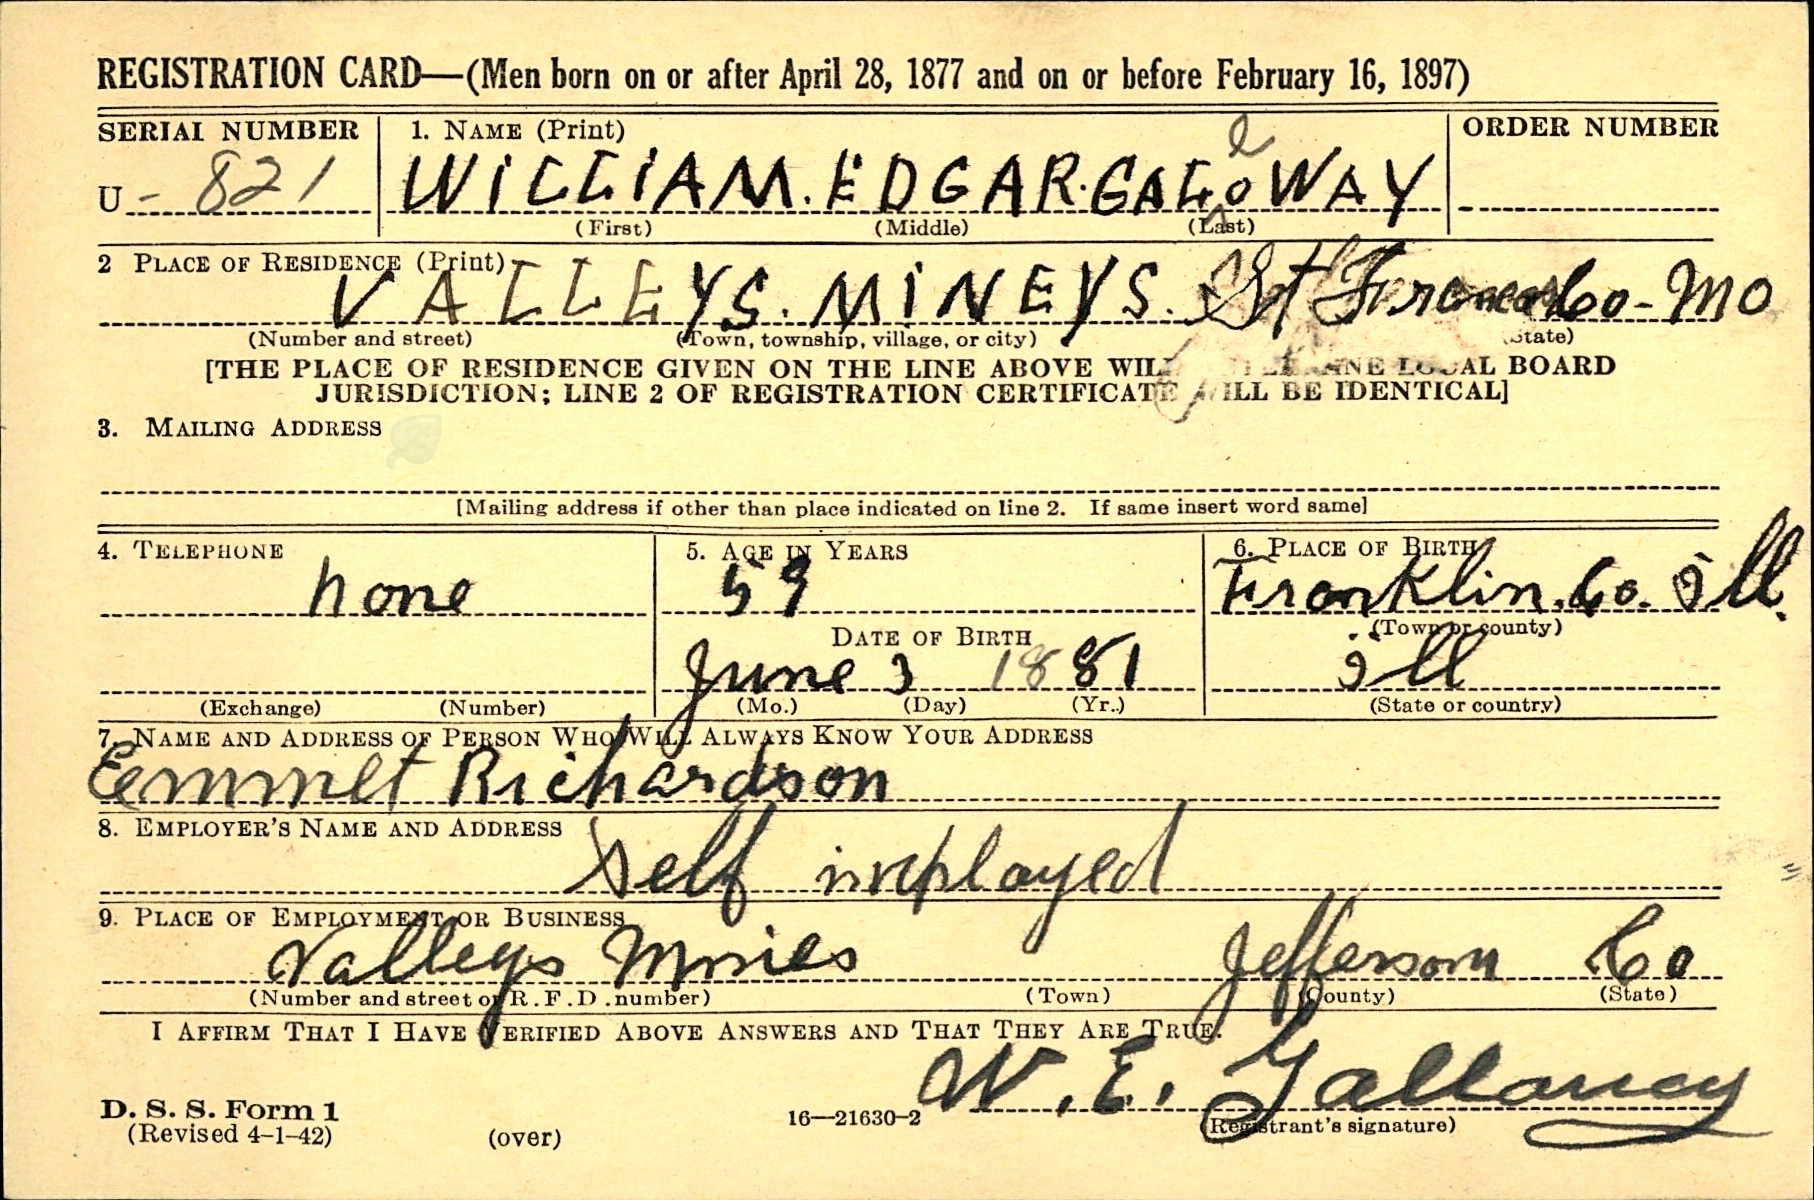 REGISTRATION CARD—(Men born on or after April 28, 1877 and on or before February 16, 1897)
SERIAL NUMBER 1. NAME (Print) ORDER NUMBER
l
U - 821 WILLIAM. EDGAR. GALOWAY
(First) (Middle) (Last)
2 PLACE OF RESIDENCE (Print)
VALLEYS. MINEYS. St Co - MO
(Number and street) (Town, township, village, or city) (State)
[THE PLACE OF RESIDENCE GIVEN ON THE LINE ABOVE WILL LOCAL BOARD
JURISDICTION; LINE 2 OF REGISTRATION CERTIFICATE WILL BE IDENTICAL]
3. MAILING ADDRESS
[Mailing address if other than place indicated on line 2. If same insert word same]
4. TELEPHONE 5. AGE IN YEARS 6. PLACE OF BIRTH
none 59 Franklin. Co. Ill.
(Town or county)
DATE OF BIRTH
June 3 1881 Ill
(Exchange) (Number) (Mo.) (Day) (Yr.) (State or country)
7. NAME AND ADDRESS OF PERSON WHO WILL ALWAYS KNOW YOUR ADDRESS
Emmet Richardson
8. EMPLOYER'S NAME AND ADDRESS
Self imployed
9. PLACE OF EMPLOYMENT OR BUSINESS
Valleys Mines Jefferson Co
(Number and street or R. F. D. number) (Town) (County) (State)
I AFFIRM THAT I HAVE VERIFIED ABOVE ANSWERS AND THAT THEY ARE TRUE.
W. E. Galloway
D. S. S. Form 1
(Revised 4-1-42) (over) 16—21630-2 (Registrant's signature)